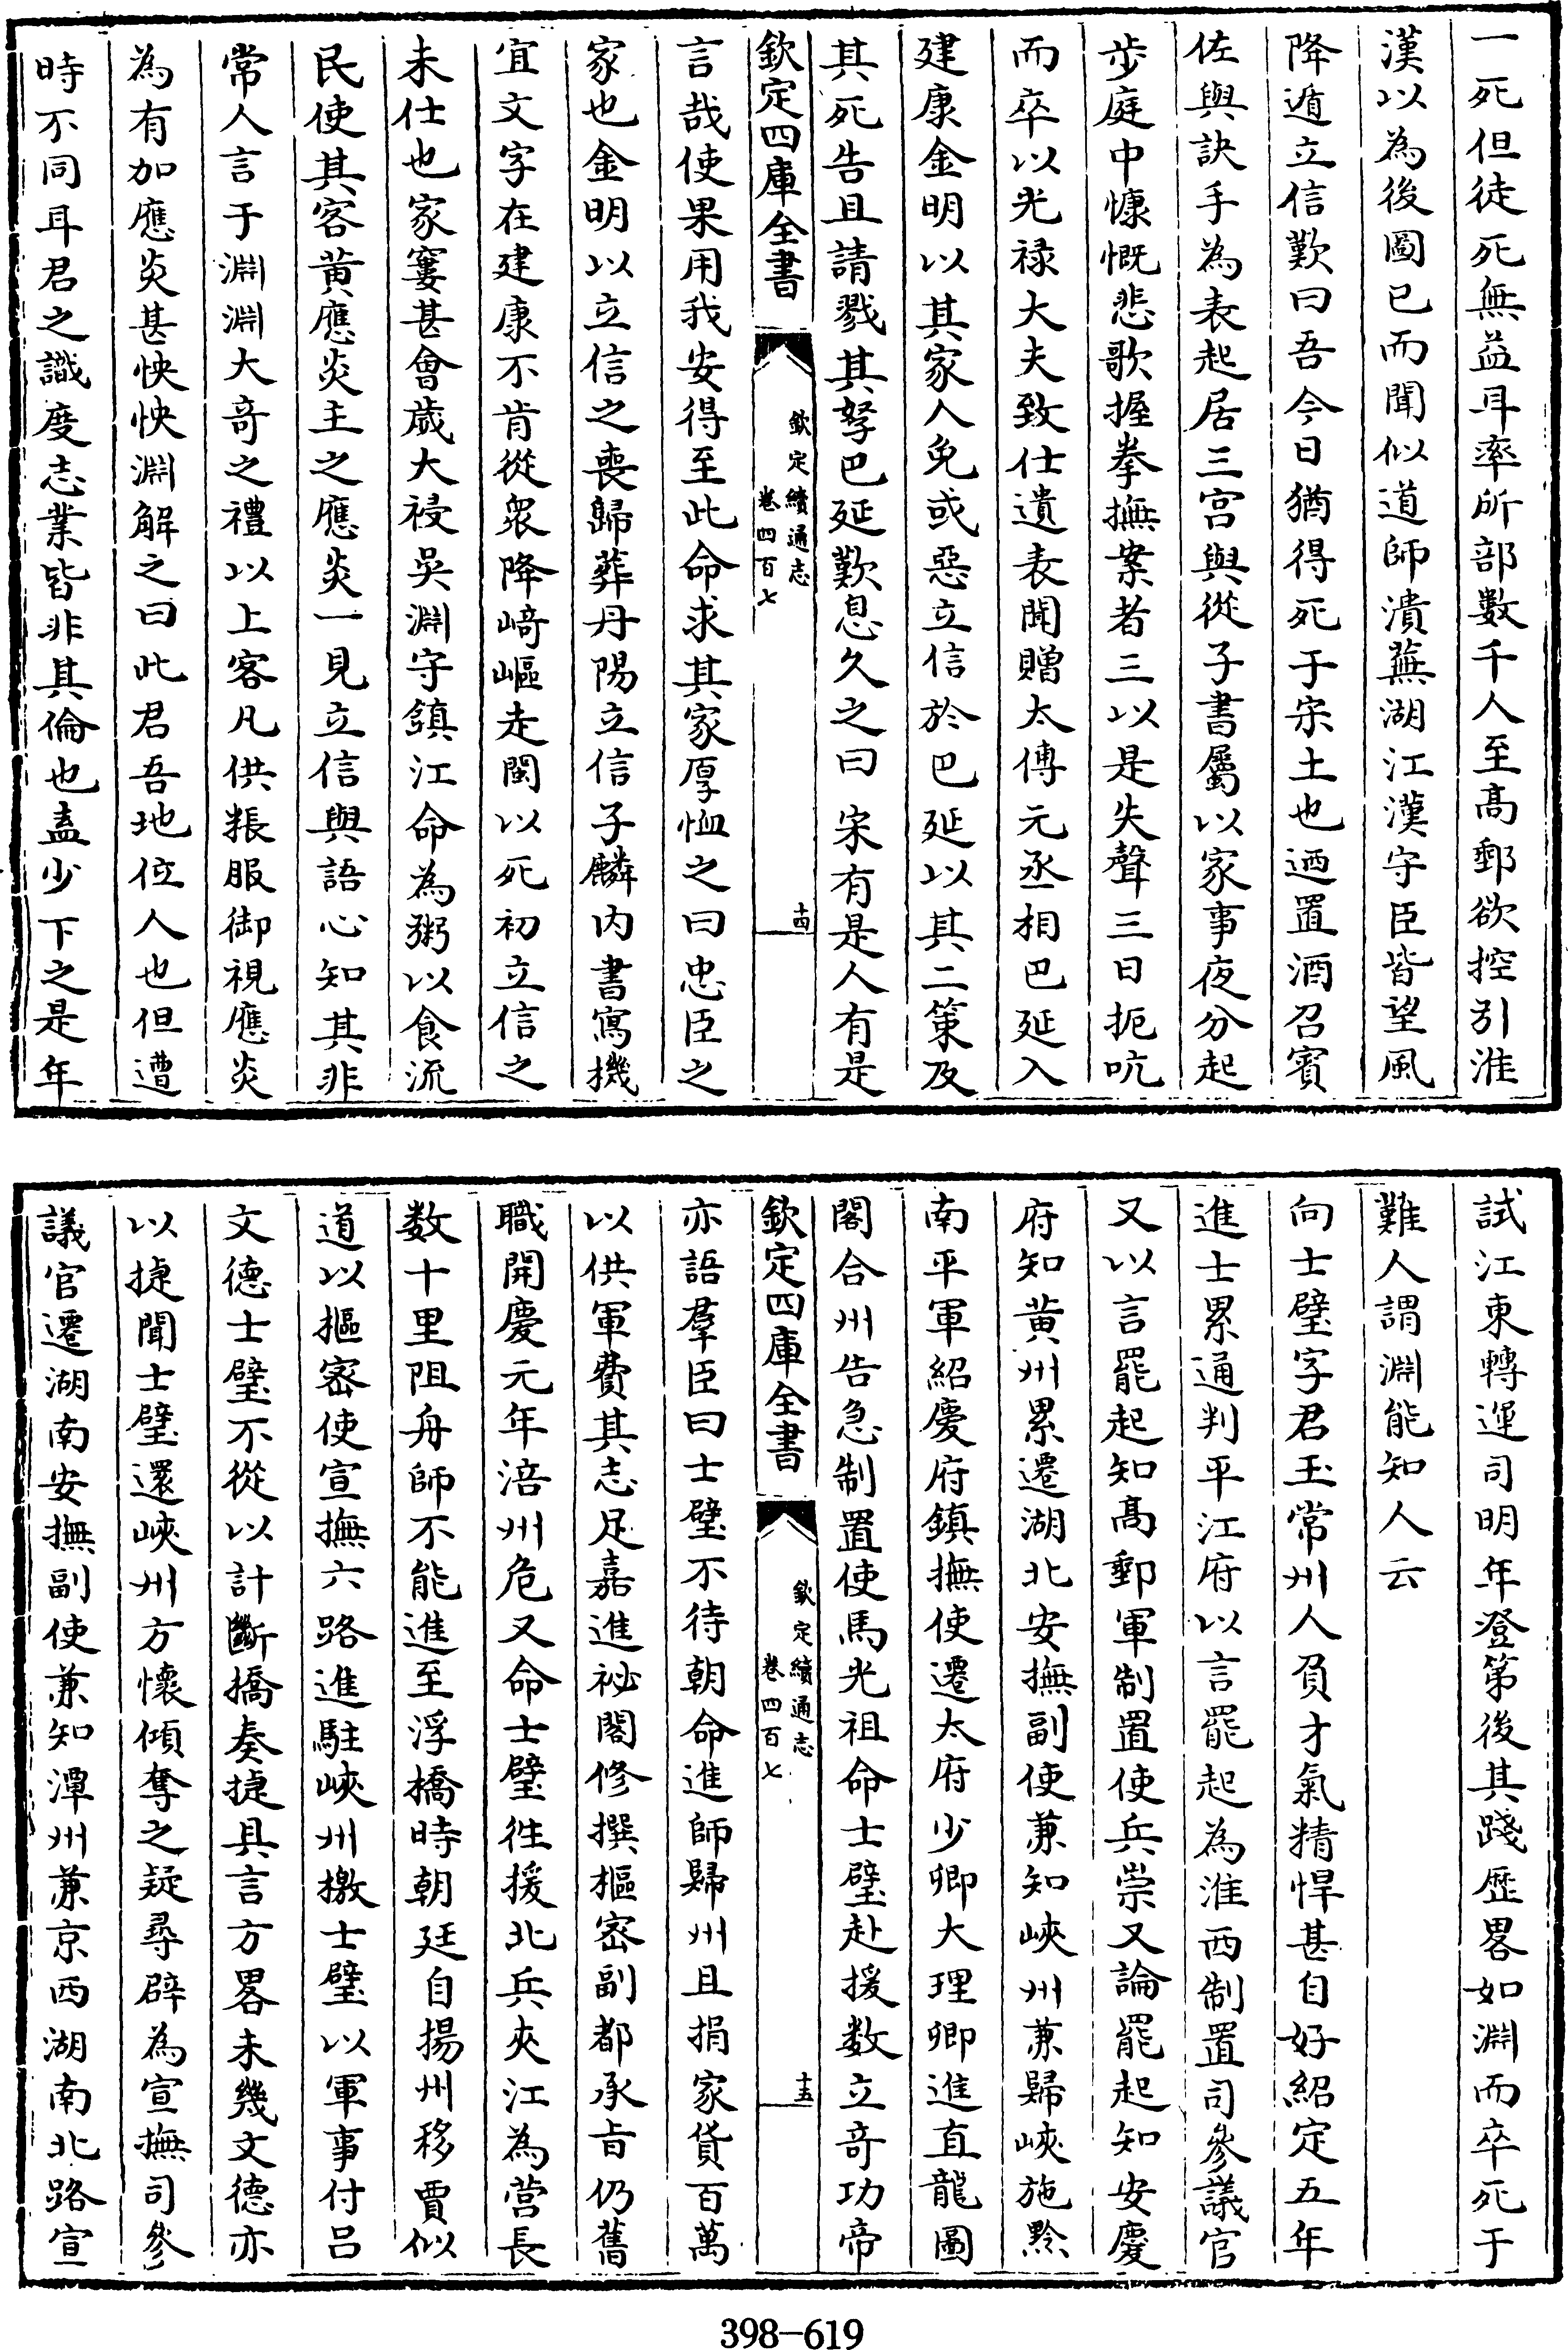 一死但徒死無益耳率所部數千人至髙郵欲控引淮
漢以為後圖已而聞似道師潰蕪湖江漢守臣皆望風
降遁立信歎曰吾今日猶得死于宋土也迺置酒召賓
佐與訣手為表起居三宮與從子書屬以家事夜分起
步庭中慷慨悲歌握拳撫案者三以是失聲三日扼吭
而卒以光禄大夫致仕遺表聞贈太傅元丞相巴延入
建康金明以其家人免或惡立信於巴延以其二策及
其死告且請戮其孥巴延歎息久之曰宋有是人有是
欽定四庫全書
欽定續通志
卷四百七
十四
言哉使果用我安得至此命求其家厚恤之曰忠臣之
家也金明以立信之喪歸葬丹陽立信子麟內書寫機
宜文字在建康不肯從衆降崎嶇走閩以死初立信之
未仕也家窶甚會歲大祲吳淵守鎮江命為粥以食流
民使其客黄應炎主之應炎一見立信與語心知其非
常人言于淵淵大竒之禮以上客凡供帳服御視應炎
為有加應炎甚怏怏淵解之曰此君吾地位人也但遭
時不同耳君之識度志業皆非其倫也盍少下之是年
試江東轉運司明年登第後其踐歴畧如淵而卒死于
難人謂淵能知人云
向士璧字君玉常州人負才氣精悍甚自好紹定五年
進士累通判平江府以言罷起為淮西制置司參議官
又以言罷起知髙郵軍制置使丘崇又論罷起知安慶
府知黄州累遷湖北安撫副使兼知峽州兼歸峽施黔
南平軍紹慶府鎮撫使遷太府少卿大理卿進直龍圖
閣合州告急制置使馬光祖命士璧赴援数立竒功帝
欽定四庫全書
欽定續通志
卷四百七
十五
亦語羣臣曰士璧不待朝命進師歸州且捐家貲百萬
以供軍費其志足嘉進祕閣修撰樞密副都承㫖仍舊
職開慶元年涪州危又命士璧往援北兵夾江為營長
数十里阻舟師不能進至浮橋時朝廷自揚州移賈似
道以樞密使宣撫六路進駐峽州檄士璧以軍事付吕
文德士璧不從以計斷橋奏捷具言方畧未幾文德亦
以捷聞士璧還峽州方懷傾奪之疑尋辟為宣撫司參
議官遷湖南安撫副使兼知潭州兼京西湖南北路宣
398-619